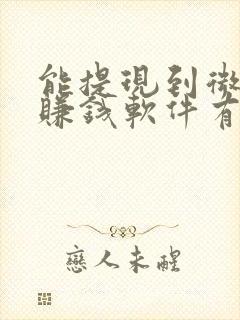 能提現到微
賺錢軟件有
戀人未醒